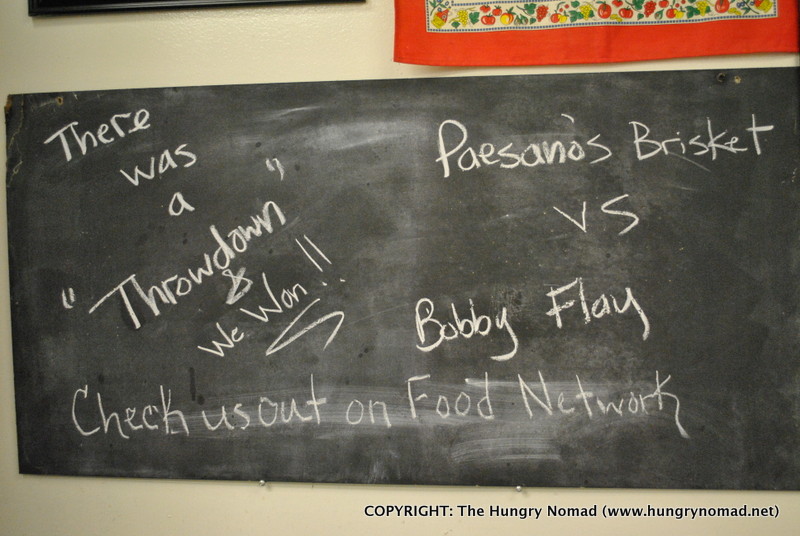 There
was
a
"Throwdown"
&
We Won!!
Paesano's Brisket
VS
Bobby Flay
Check us out on Food Network
COPYRIGHT: The Hungry Nomad (www.hungrynomad.net)